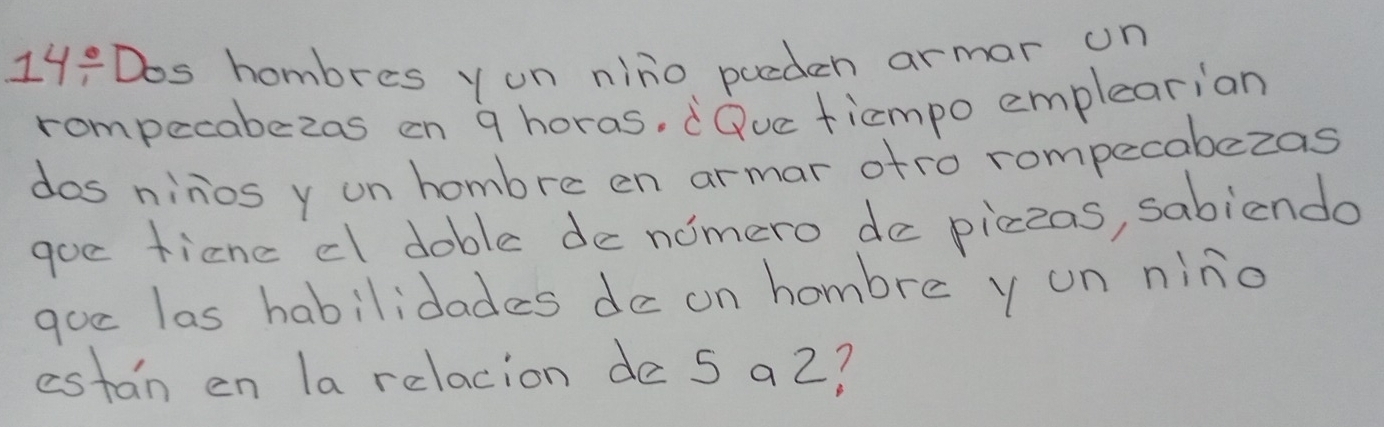 14÷ Dos hombres y un niño pueden armar un
rompecabezas en 9 horas. ¿Que tiempo emplearían
dos niños y un hombre en armar otro rompecabezas
que tiene el doble de número de piezas, sabiendo
que las habilidades de un hombre y un niño
están en la relacion de 5 a 2?